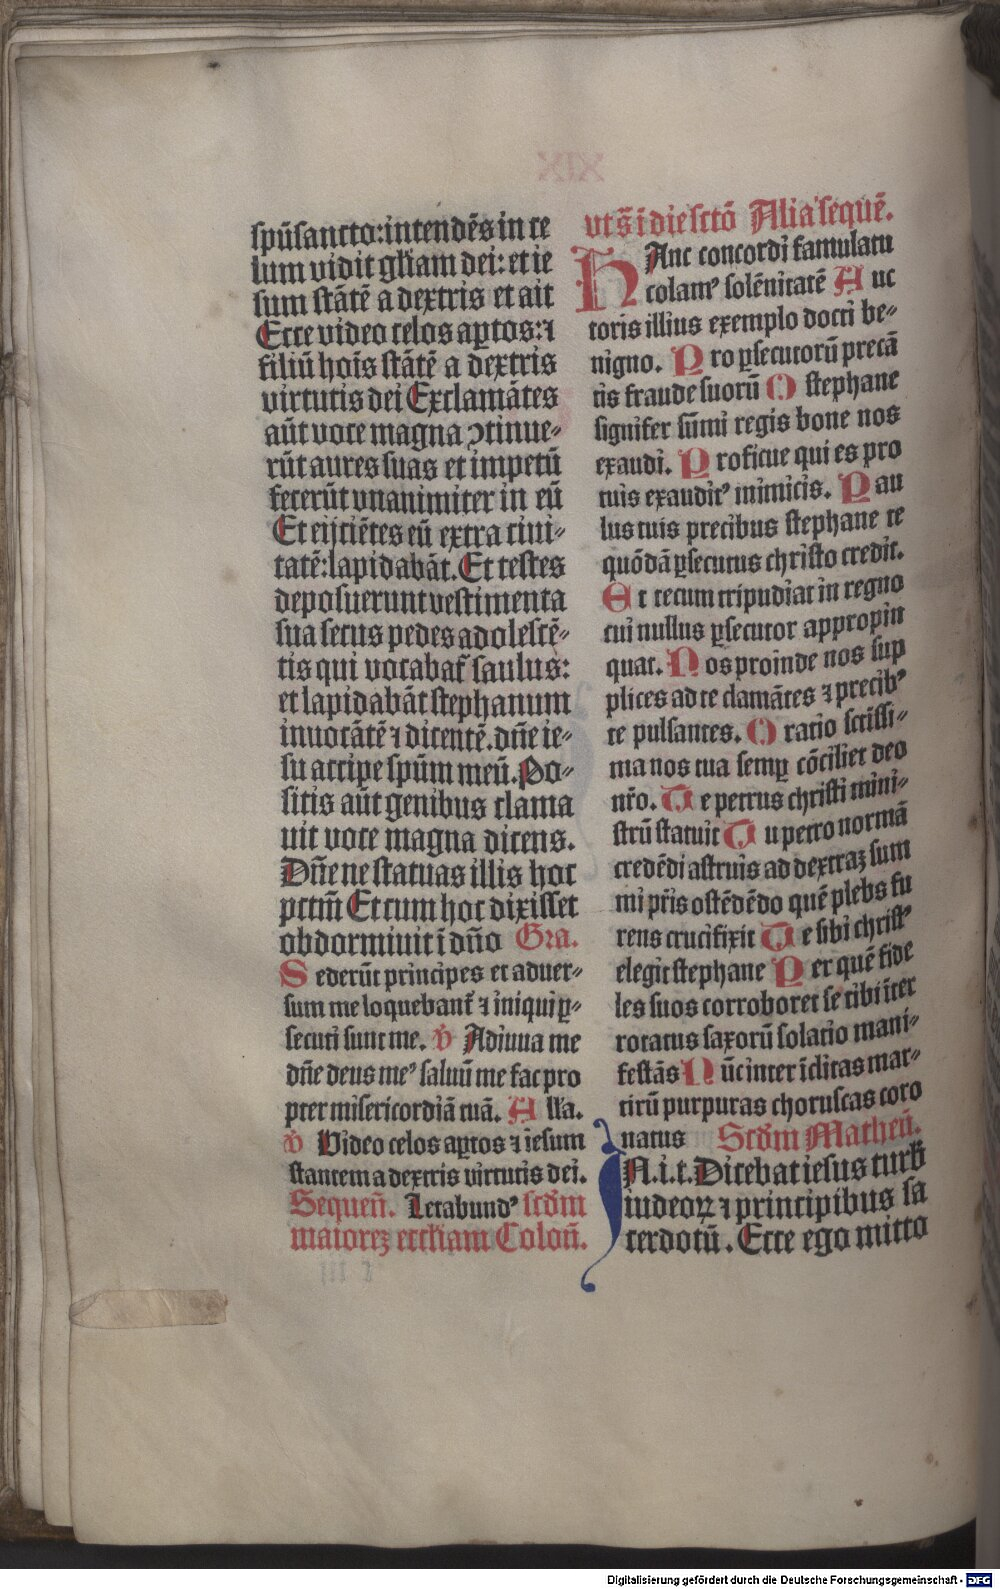 spūsancto:intendēs in ce
lum vidit gl'iam dei: et ie
sum stātē a dextris et ait
Ecce video celos aꝑtos:⁊
filiū hoīs stātē a dextris
virtutis dei Exclamātes
aūt voce magna ↄtinue-
rūt aures suas et impetū
fecerūt vnanimiter in eū
Et eijciētes eū extra ciui-
tatē:lapidabāt. Et testes
deposuerunt vestimenta
sua secus pedes adolescē-
tis qui vocabat̄ saulus:
et lapidabāt stephanum
inuocātē ⁊ dicentē. dn̄e ie-
su accipe spūm meū. Po-
sitis aūt genibus clama
uit voce magna dicens.
Dn̄e ne statuas illis hoc
pctm̄ Et cum hoc dixisset
obdormiuit ī dn̄o Gra.
Sederūt principes et aduer-
sum me loquebant̄ ⁊ iniqui ꝑ-
secuti sunt me. v̄ Adiuua me
dn̄e deus meꝰ saluū me fac pro
pter misericordiā tuā. All'a.
v̄ Video celos aꝑtos ⁊ iesum
stantem a dextris virtutis dei.
Sequen̄. Letabundꝰ scd̄m
maiorez eccl'iam Colon̄.
vt s̄ i die sctō Alia sequē.
HAnc concordi famulatu
colamꝰ solēnitatē Auc
toris illius exemplo docti be-
nigno. Pro ꝑsecutorū precā
tis fraude suorū O stephane
signifer sūmi regis bone nos
exaudi. Proficue qui es pro
tuis exauditꝰ inimicis. Pau
lus tuis precibus stephane te
quōdā ꝑsecutus christo credit.
Et tecum tripudiat in regno
cui nullus ꝑsecutor appropin
quat. Nos proinde nos sup
plices ad te clamātes ⁊ precibꝰ
te pulsantes. Oratio sctissi-
ma nos tua semꝑ cōciliet deo
nr̄o. Te petrus christi mini-
strū statuit Tu petro normā
credēdi astruis ad dextraz sum
mi pr̄is ostēdēdo quē plebs fu
rens crucifixit Te sibi christꝰ
elegit stephane Per quē fide
les suos corroboret se tibi īter
rotatus saxorū solatio mani-
festās Nūc inter īclitas mar-
tirū purpuras choruscas coro
natus Scd̄m Matheū.
IN.i.t. Dicebat iesus turb̄
iudeoꝝ ⁊ principibus sa
cerdotū. Ecce ego mitto
Digitalisierung gefördert durch die Deutsche Forschungsgemeinschaft - DFG